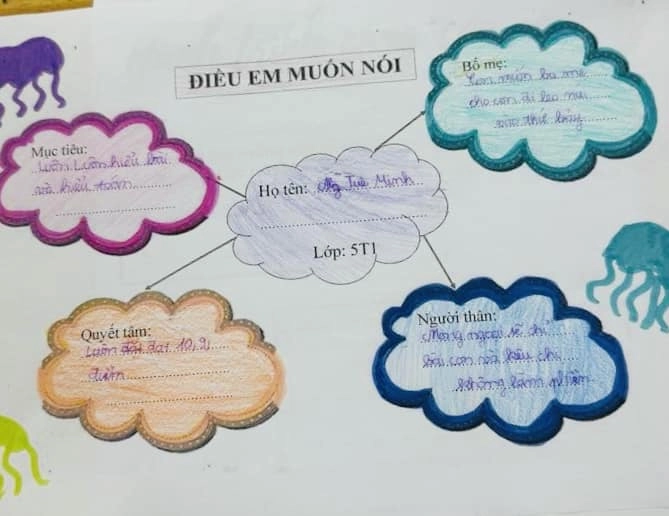 ĐIỀU EM MUỐN NÓI
Bố mẹ:
Con muốn ba mẹ
cho con đi leo núi
vào thứ bảy
Mục tiêu:
Luôn Luôn hiểu bài
và hiểu toán
Họ tên: Tuệ Minh
Lớp: 5T1
Quyết tâm:
Luôn đạt 10, 9
điểm
Người thân:
Mong ngoại sẽ chỉ
bài con và kêu chị
không làm phiền